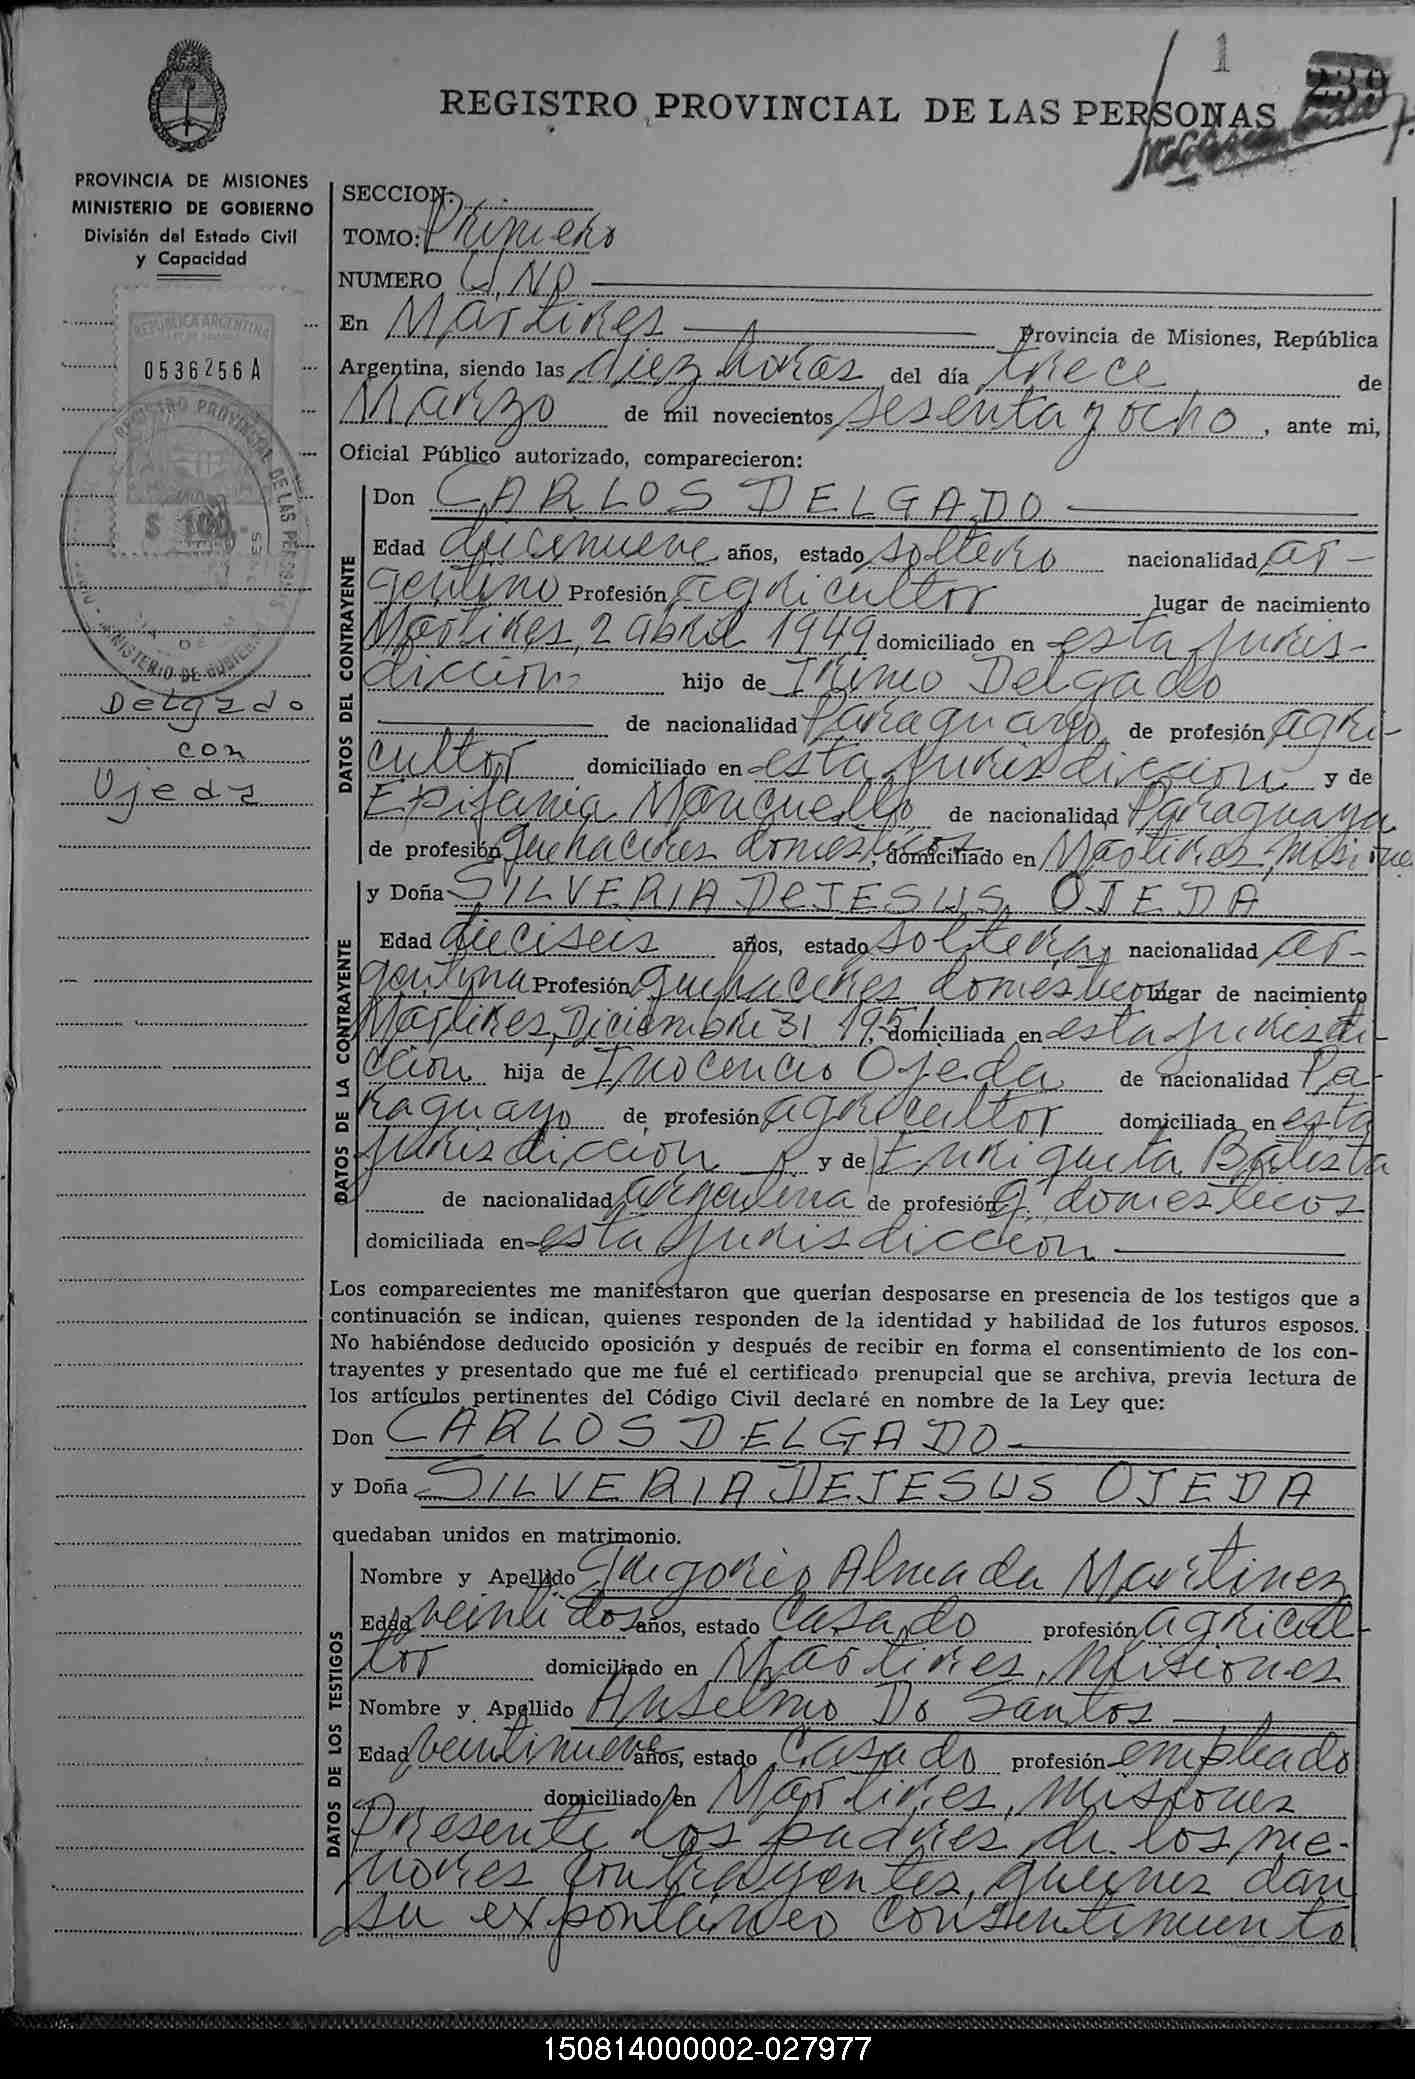 1
239
REGISTRO PROVINCIAL DE LAS PERSONAS
PROVINCIA DE MISIONES
MINISTERIO DE GOBIERNO
División del Estado Civil
y Capacidad
REPUBLICA ARGENTINA
0536256 A
REGISTRO PROVINCIAL DE LAS PERSONAS
MINISTERIO DE GOBIERNO
$ 100.-
Delgado
con
Ojeda
SECCION:
TOMO: Primero
NUMERO UNO
En Mártires Provincia de Misiones, República
Argentina, siendo las diez horas del día trece de
Marzo de mil novecientos sesenta y ocho, ante mi,
Oficial Público autorizado, comparecieron:
DATOS DEL CONTRAYENTE
Don CARLOS DELGADO
Edad diecinueve años, estado soltero nacionalidad ar-
gentino Profesión agricultor lugar de nacimiento
Mártires, 2 abril 1949 domiciliado en esta juris-
dicción hijo de Irineo Delgado
de nacionalidad Paraguayo de profesión agri-
cultor domiciliado en esta jurisdicción y de
Epifania de nacionalidad Paraguaya
de profesión quehaceres domesticos, domiciliado en Mártires, Misiones
DATOS DE LA CONTRAYENTE
y Doña SILVERIA DeJESUS OJEDA
Edad dieciseis años, estado soltera, nacionalidad ar-
gentina Profesión quehaceres domesticos lugar de nacimiento
Mártires, Diciembre 31 1951 domiciliada en esta jurisdi-
cción hija de Inocencio Ojeda de nacionalidad Pa-
raguayo de profesión agricultor domiciliada en esta
jurisdicción y de Enriqueta Batista
de nacionalidad argentina de profesión q. domesticos
domiciliada en esta jurisdicción
Los comparecientes me manifestaron que querían desposarse en presencia de los testigos que a
continuación se indican, quienes responden de la identidad y habilidad de los futuros esposos.
No habiéndose deducido oposición y después de recibir en forma el consentimiento de los con-
trayentes y presentado que me fué el certificado prenupcial que se archiva, previa lectura de
los artículos pertinentes del Código Civil declaré en nombre de la Ley que:
Don CARLOS DELGADO
y Doña SILVERIA DEJESUS OJEDA
quedaban unidos en matrimonio.
DATOS DE LOS TESTIGOS
Nombre y Apellido Gregorio Almada Martinez
Edad veintidos años, estado Casado profesión agricul-
tor domiciliado en Mártires, Misiones
Nombre y Apellido Anselmo Do Santos
Edad veintinueve años, estado Casado profesión empleado
domiciliado en Mártires, Misiones
Presente los padres de los me-
nores contrayentes, quienes dan
su expontaneo consentimiento
150814000002-027977